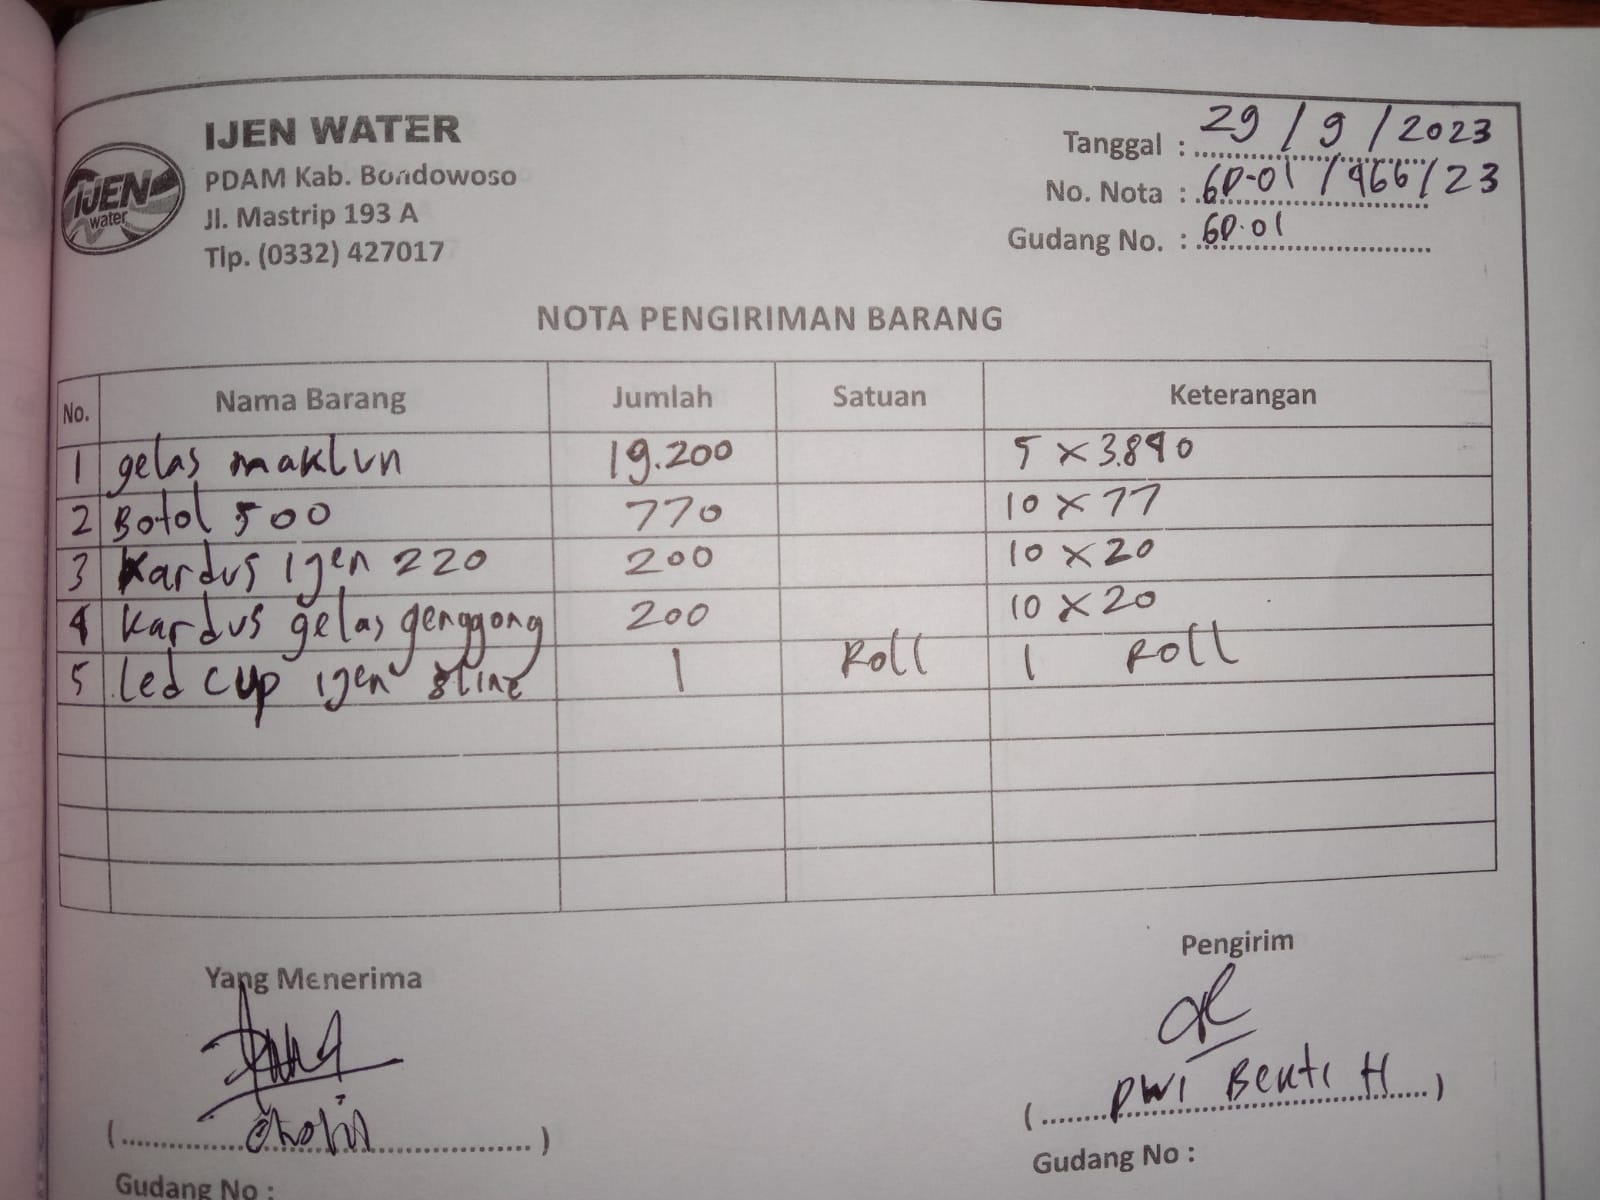 IJEN WATER
PDAM Kab. Bondowoso
Jl. Mastrip 193 A
Tlp. (0332) 427017
IJEN
water
Tanggal : 29 / 9 / 2023
No. Nota : GD-01 / 466 / 23
Gudang No. : GD.01
NOTA PENGIRIMAN BARANG
No. Nama Barang Jumlah Satuan Keterangan
1 gelas maklun 19.200 5 x 3.840
2 Botol 500 770 10 x 77
3 Kardus ijen 220 200 10 x 20
4 Kardus gelas genggong 200 10 x 20
5 Led cup ijen 8 line 1 Roll 1 Roll
Pengirim
Yang Menerima
(DWI Benti H)
( )
Gudang No :
Gudang No :